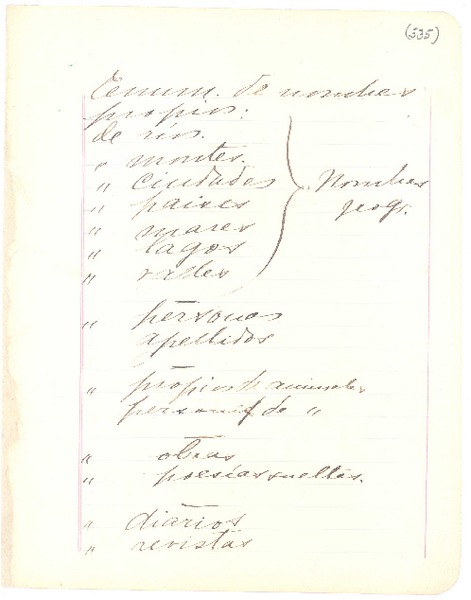 (535)
de nombres
propios:
de ríos.
" montes.
" ciudades
" paises
" mares
" lagos
" valles
Nombres
geogr.
" personas
apellidos
" propios de animales
personif de "
" obras
" poesías sueltas.
" diarios
" revistas